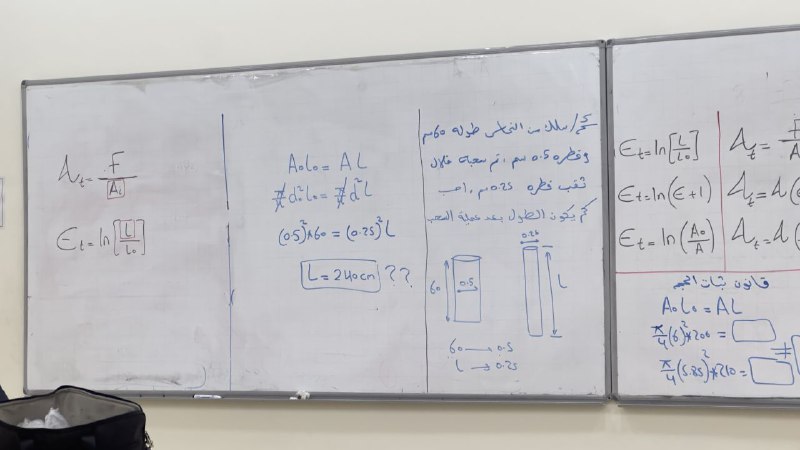 σt = F / Ai
Et = ln[L/L₀]
A₀L₀ = AL
π/4 d₀² L₀ = π/4 d² L
(0.5)² * 60 = (0.25)² L
L = 240cm ??
سلك من النحاس طوله 60 سم
وقطره 0.5 سم , تم سحبه خلال
ثقب قطره 0.25 سم , احب
كم يكون الطول بعد عملية السحب
60
0.5
0.25
L
60 → 0.5
L → 0.25
Et = ln[L/L₀]
Et = ln(E+1)
Et = ln(A₀/A)
σt = F / A
σt = σ(
σt = σ(
قانون ثبات الحجم
A₀L₀ = AL
π/4 (6)² * 200 =
π/4 (5.85)² * 210 =
≠